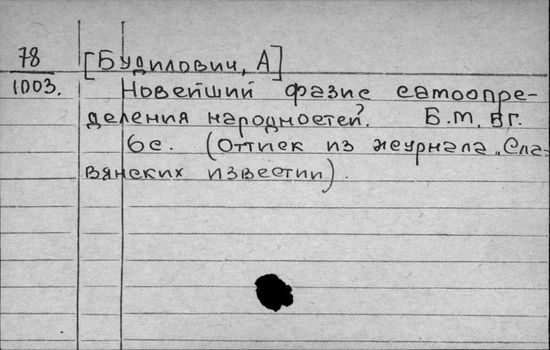 78
1003.
[Будилович, А]
Новейший фазис самоопре-
деления народностей? Б.м, вг.
6с. (Оттиск из журнала „Сла-
вянских известий).